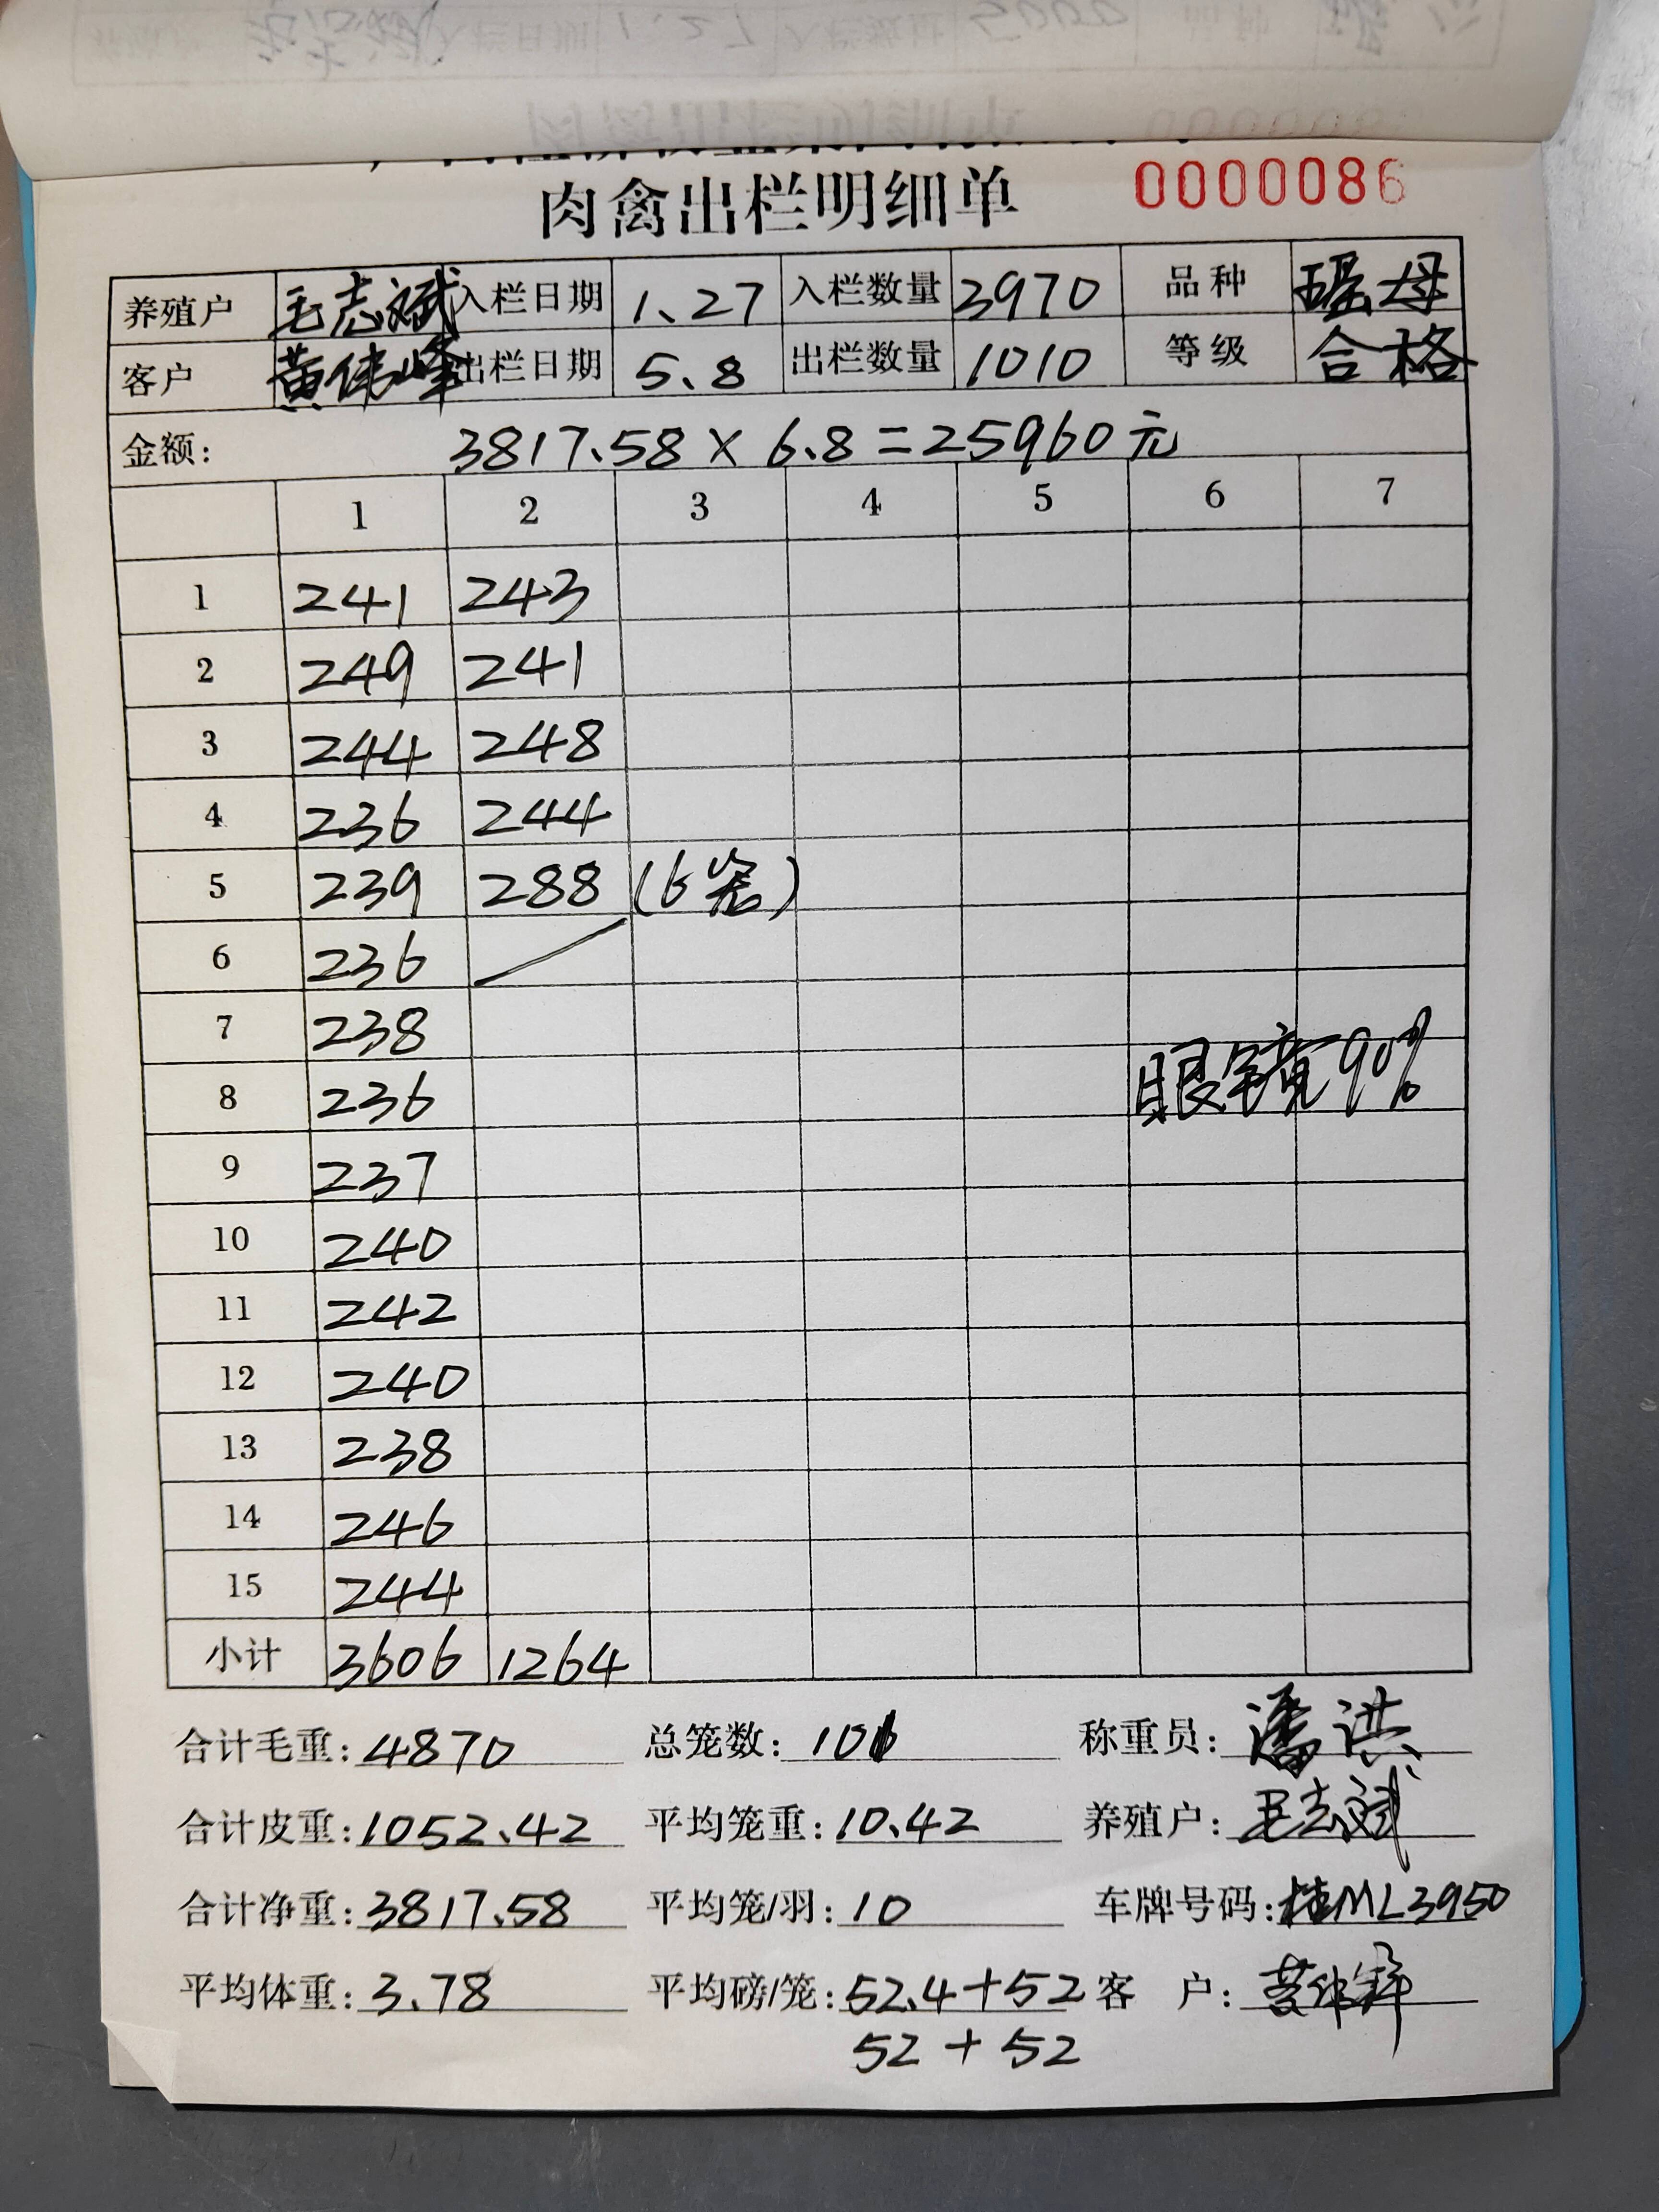 肉禽出栏明细单 0000086
养殖户 毛志斌 入栏日期 1.27 入栏数量 3970 品种 瑶母
客户 黄伟峰 出栏日期 5.8 出栏数量 1010 等级 合格
金额: 3817.58 × 6.8 = 25960元
1 2 3 4 5 6 7
1 241 243
2 249 241
3 244 248
4 236 244
5 239 288 (6笼)
6 236
7 238
8 236 眼镜90%
9 237
10 240
11 242
12 240
13 238
14 246
15 244
小计 3606 1264
合计毛重: 4870 总笼数: 101 称重员: 潘洪
合计皮重: 1052.42 平均笼重: 10.42 养殖户: 毛志斌
合计净重: 3817.58 平均笼/羽: 10 车牌号码: 桂ML3950
平均体重: 3.78 平均磅/笼: 52.4+52 客 户: 黄伟峰
52+52